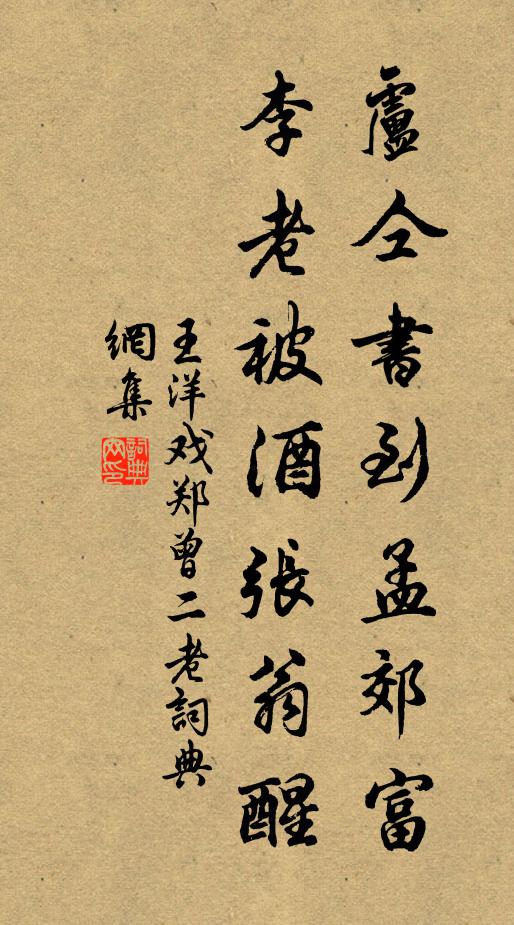 盧仝書到孟郊富
李老被酒張翁醒
王洋戏郑曾二老詞典
網集
詞典网印